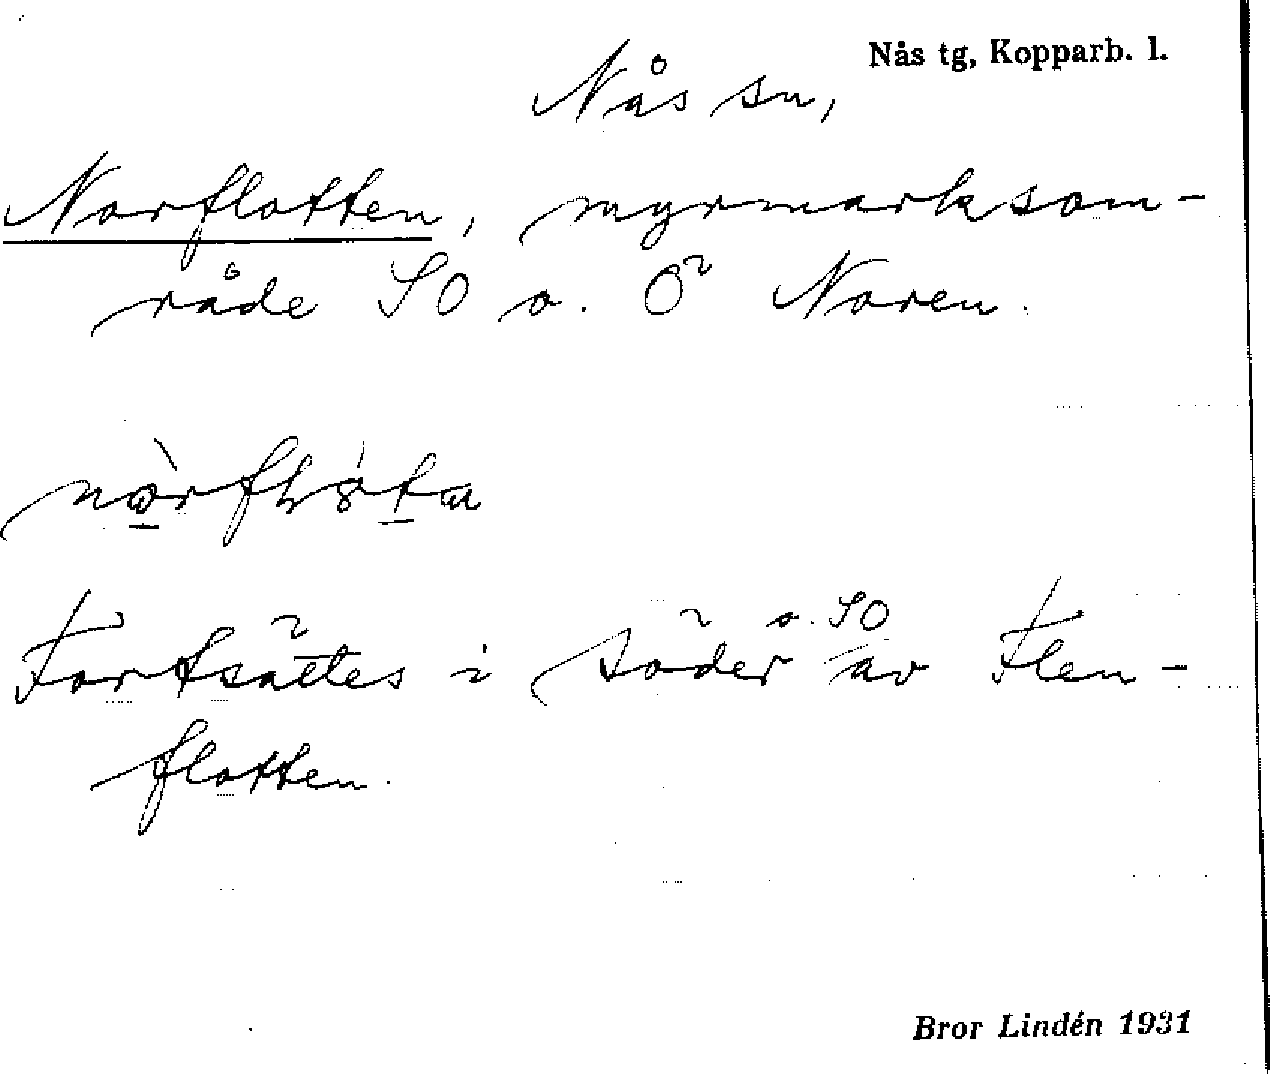 Nås tg, Kopparb. l.
Nås sn,
Norflotten, myrmarksom-
råde SO o. Ö Noren.
Fortsättes i söder o. SO av Flen-
flotten.
Bror Lindén 1931